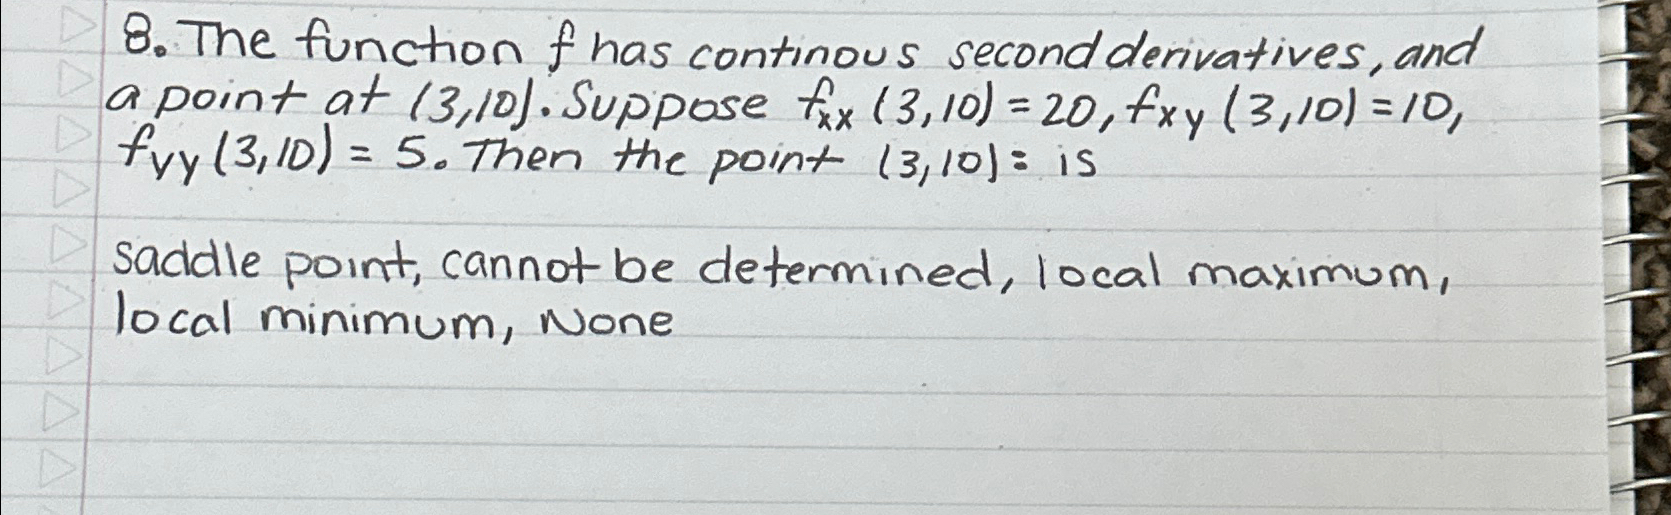 8. The function f has continous second derivatives, and
a point at (3,10). Suppose fxx (3,10) = 20, fxy (3,10) = 10,
fyy (3,10) = 5. Then the point (3,10): is
saddle point, cannot be determined, local maximum,
local minimum, None